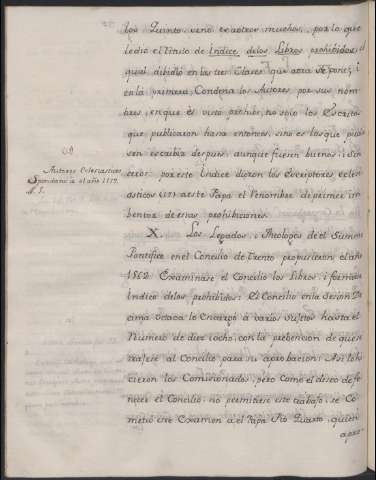 los Quinto, sino era otros muchos, por lo que
le dió el titulo de Indice de los Libros prohibidos, el
qual dibidió en las tres Clases que aora se pone, i
en la primera Condena los Autores por sus nom-
bres, en que es visto prohibir, no solo los Escritos
que publicaron hasta entonces, sino es los que pudie
sen escribir despues aunque fuesen buenos, i sin
error: por este Indice dieron los Escriptores ecles
asticos (17) a este Papa el renombre de primer in-
bentor de estas prohibiciones.
X. Los Legados, i Theologos de el Sumo
Pontifice en el Concilio de Trento propusieron el año
1562. Examinase el Concilio los Libros, i formase
Indice de los prohibidos: El Concilio en la Sesion De
cima octaba lo encargó à varios sujetos hasta el
Numero de diez i ocho, con la prebencion de que en
trasese al Concilio para su aprobacion: Asi lo hi
cieron los Comisionados, pero como el deseo de fe-
necer el Concilio no permitiese este trabajo, se Co-
metió este Examen à el Papa Pio Quarto, quien
apro-
(17)
Autores Eclesiasticos
Spondano à el año 1559.
N. 5.